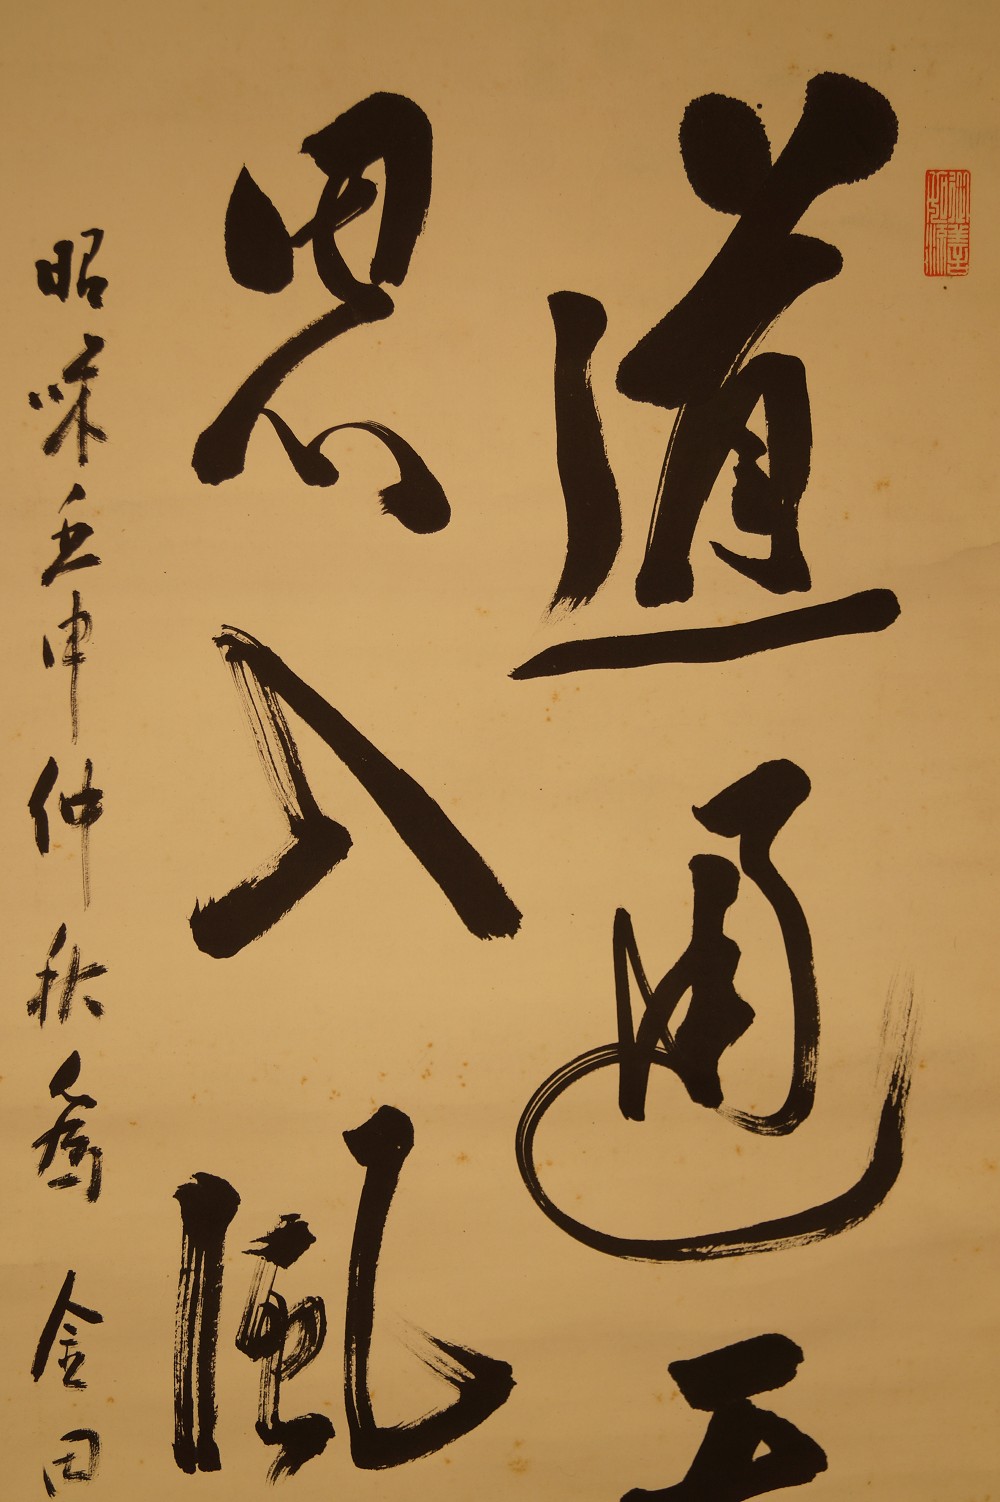 道通天
思入風
昭和壬申仲秋為金田